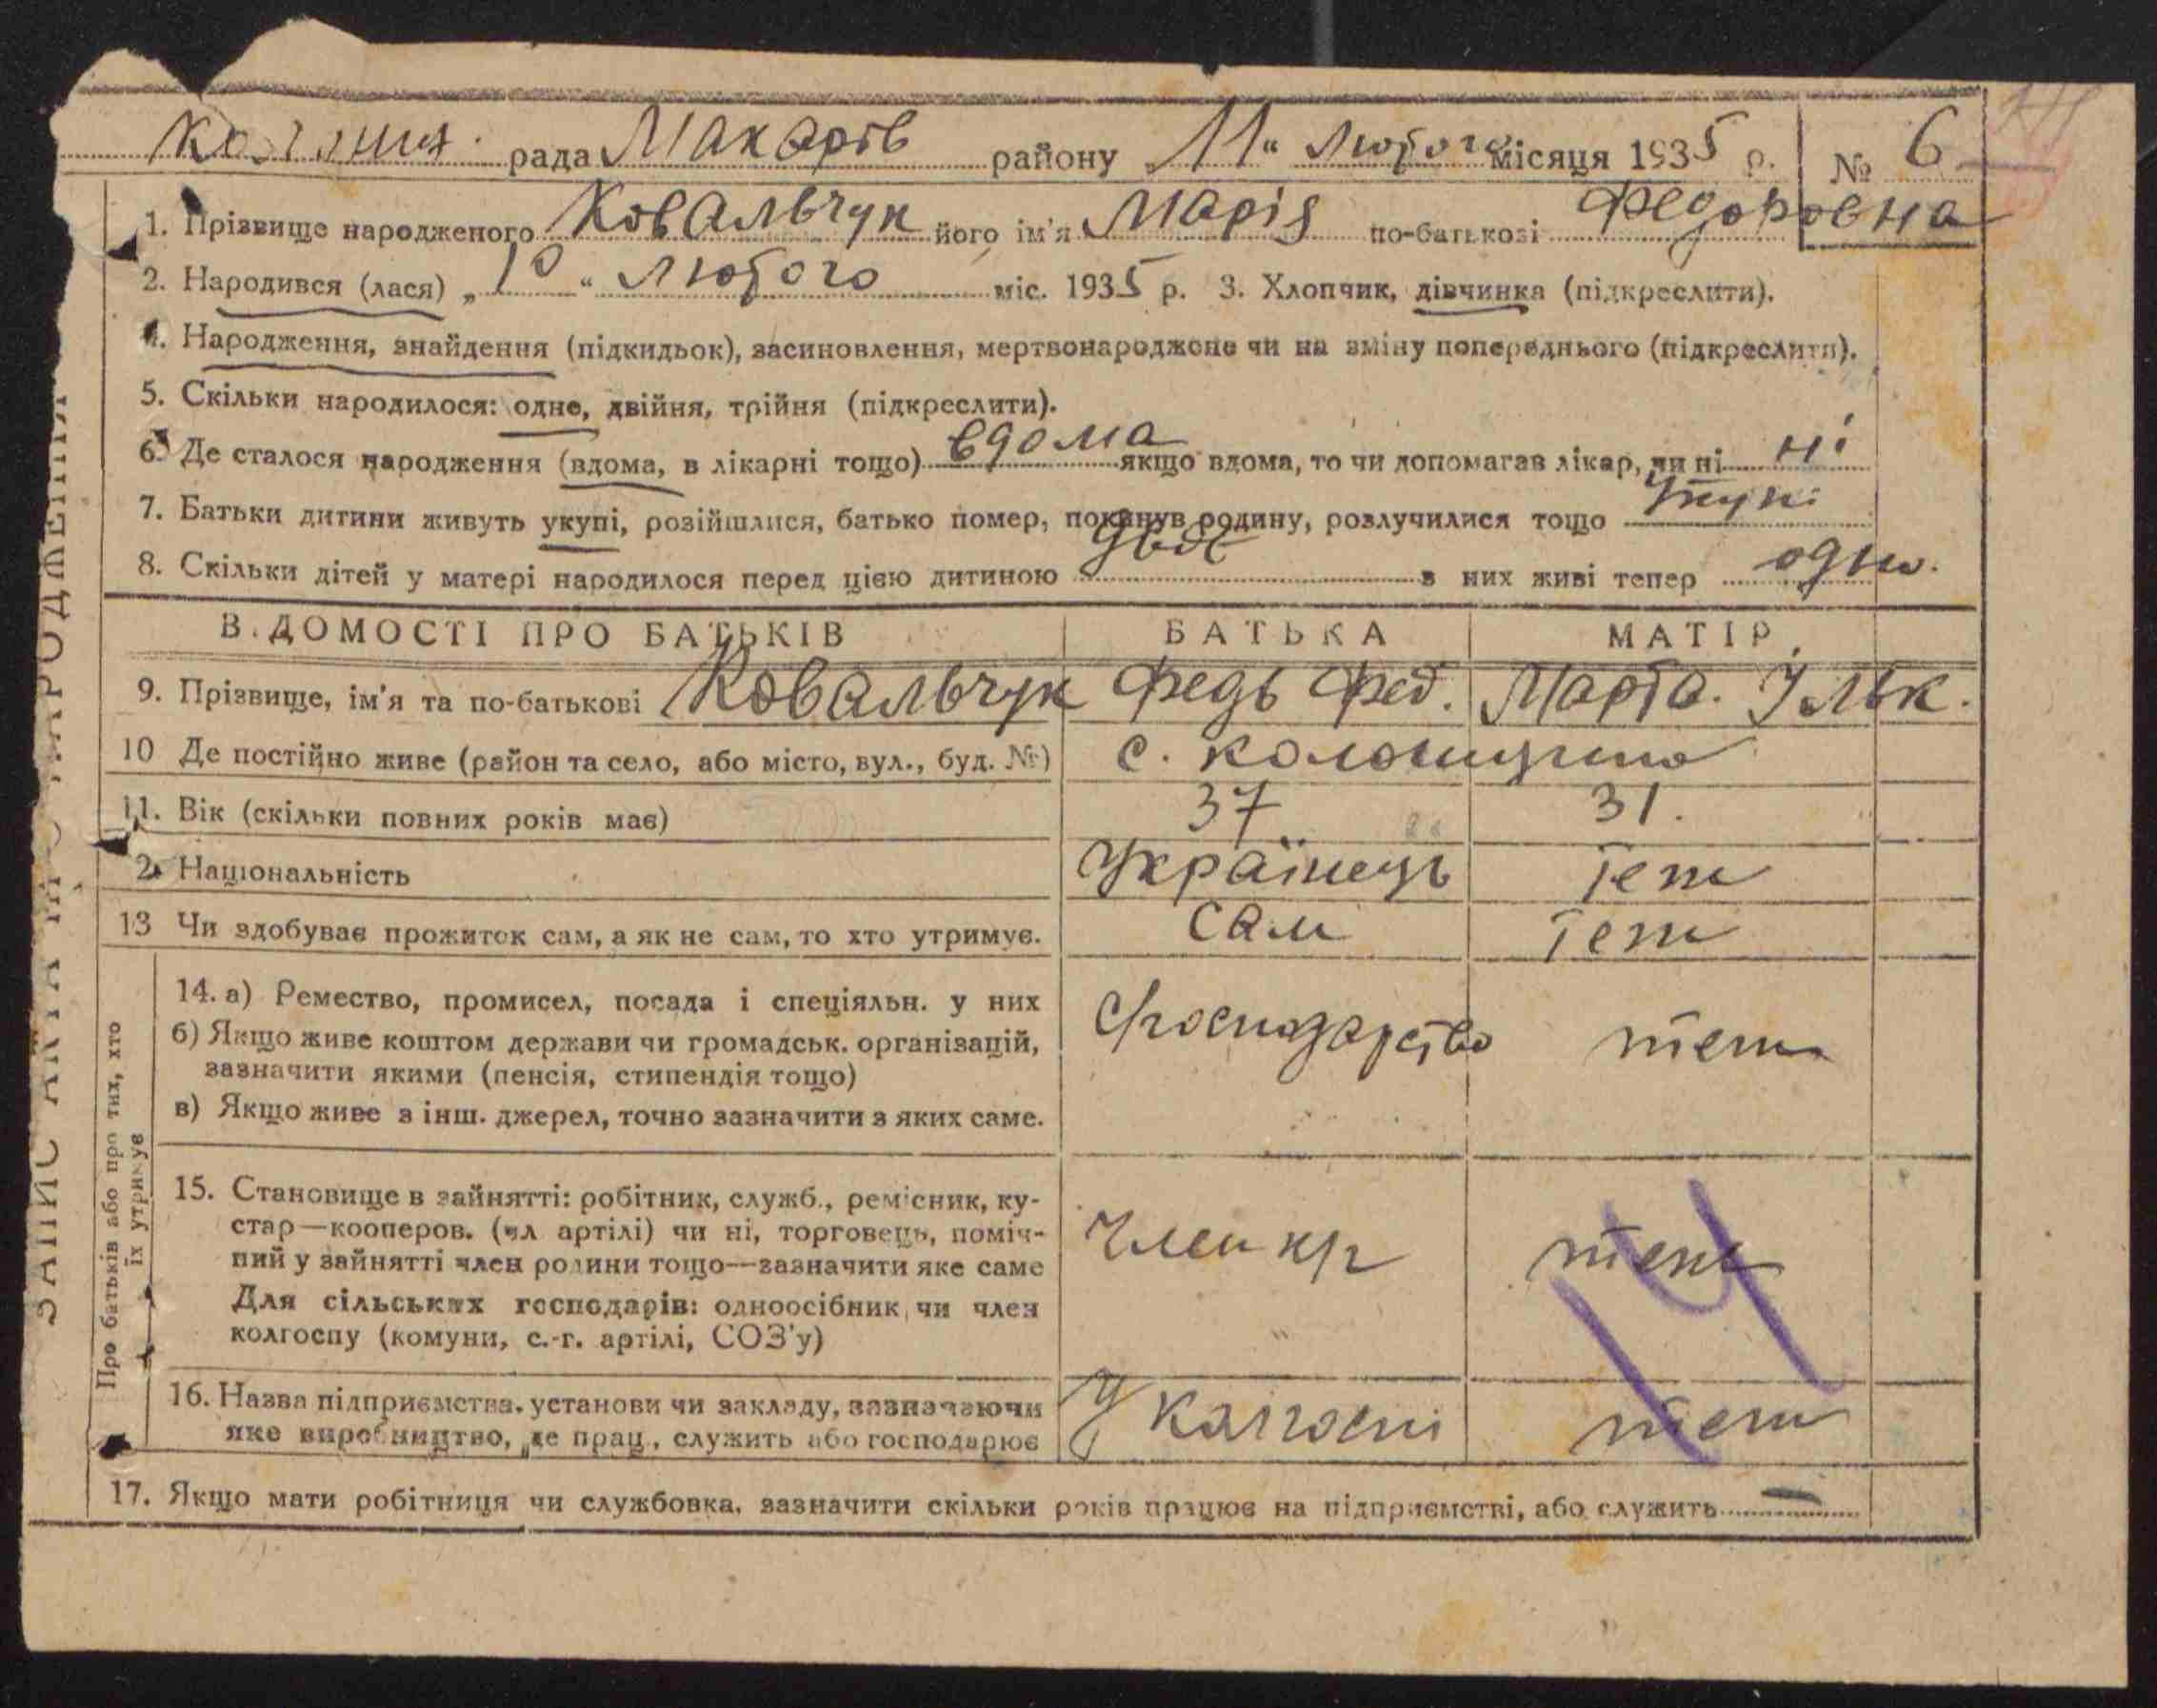 рада Макарів району 11 " Лютого місяця 1935 р. № 6
1. Прізвище народженого Ковальчук його ім'я Марія по-батькові Федоровна
2. Народився (лася) „ 10 " Лютого міс. 1935 р. 3. Хлопчик, дівчинка (підкреслити).
4. Народження, знайдення (підкидьок), засиновлення, мертвонароджене чи на зміну попереднього (підкреслити).
5. Скільки народилося: одне, двійня, трійня (підкреслити).
6. Де сталося народження (вдома, в лікарні тощо) вдома якщо вдома, то чи допомагав лікар, чи ні ні
7. Батьки дитини живуть укупі, розійшлися, батько помер, покинув родину, розлучилися тощо укупі
8. Скільки дітей у матері народилося перед цією дитиною двоє з них живі тепер одно.
ВІДОМОСТІ ПРО БАТЬКІВ БАТЬКА МАТІР
9. Прізвище, ім'я та по-батькові Ковальчук Федь Фед. Марта. Ільк.
10 Де постійно живе (район та село, або місто, вул., буд. №) с.
11. Вік (скільки повних років має) 37 31.
2. Національність Українець теж
13 Чи здобуває прожиток сам, а як не сам, то хто утримує. сам теж
14. а) Ремество, промисел, посада і спеціяльн. у них
б) Якщо живе коштом держави чи громадськ. організацій,
зазначити якими (пенсія, стипендія тощо)
в) Якщо живе з інш. джерел, точно зазначити з яких саме.
теж
15. Становище в зайнятті: робітник, служб., ремісник, ку-
стар—кооперов. (чл артілі) чи ні, торговець, поміч-
ний у зайнятті член родини тощо—зазначити яке саме
Для сільських господарів: одноосібник, чи член
колгоспу (комуни, с.-г. артілі, СОЗ'у)
Член кг теж
14
16. Назва підприємства, установи чи закладу, зазначаючи
яке виробництво, де прац., служить або господарює
у колгоспі теж
17. Якщо мати робітниця чи службовка, зазначити скільки років працює на підприємстві, або служить —
Про батьків або про тих, хто
їх утримує
ЗАПИС АКТА ПРО НАРОДЖЕННЯ